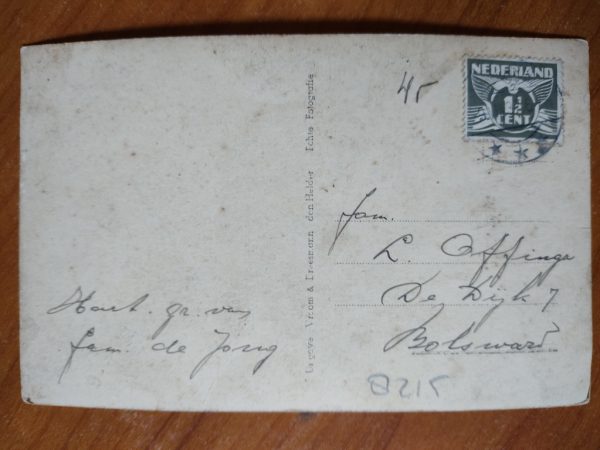 NEDERLAND
1½
CENT
45
Uitgave Vroom & Dreesmann den Helder Echte Fotografie
Fam.
L. Offinga
De Dijk 7
Bolsward
Hart. gr. van
fam. de Jong
B215